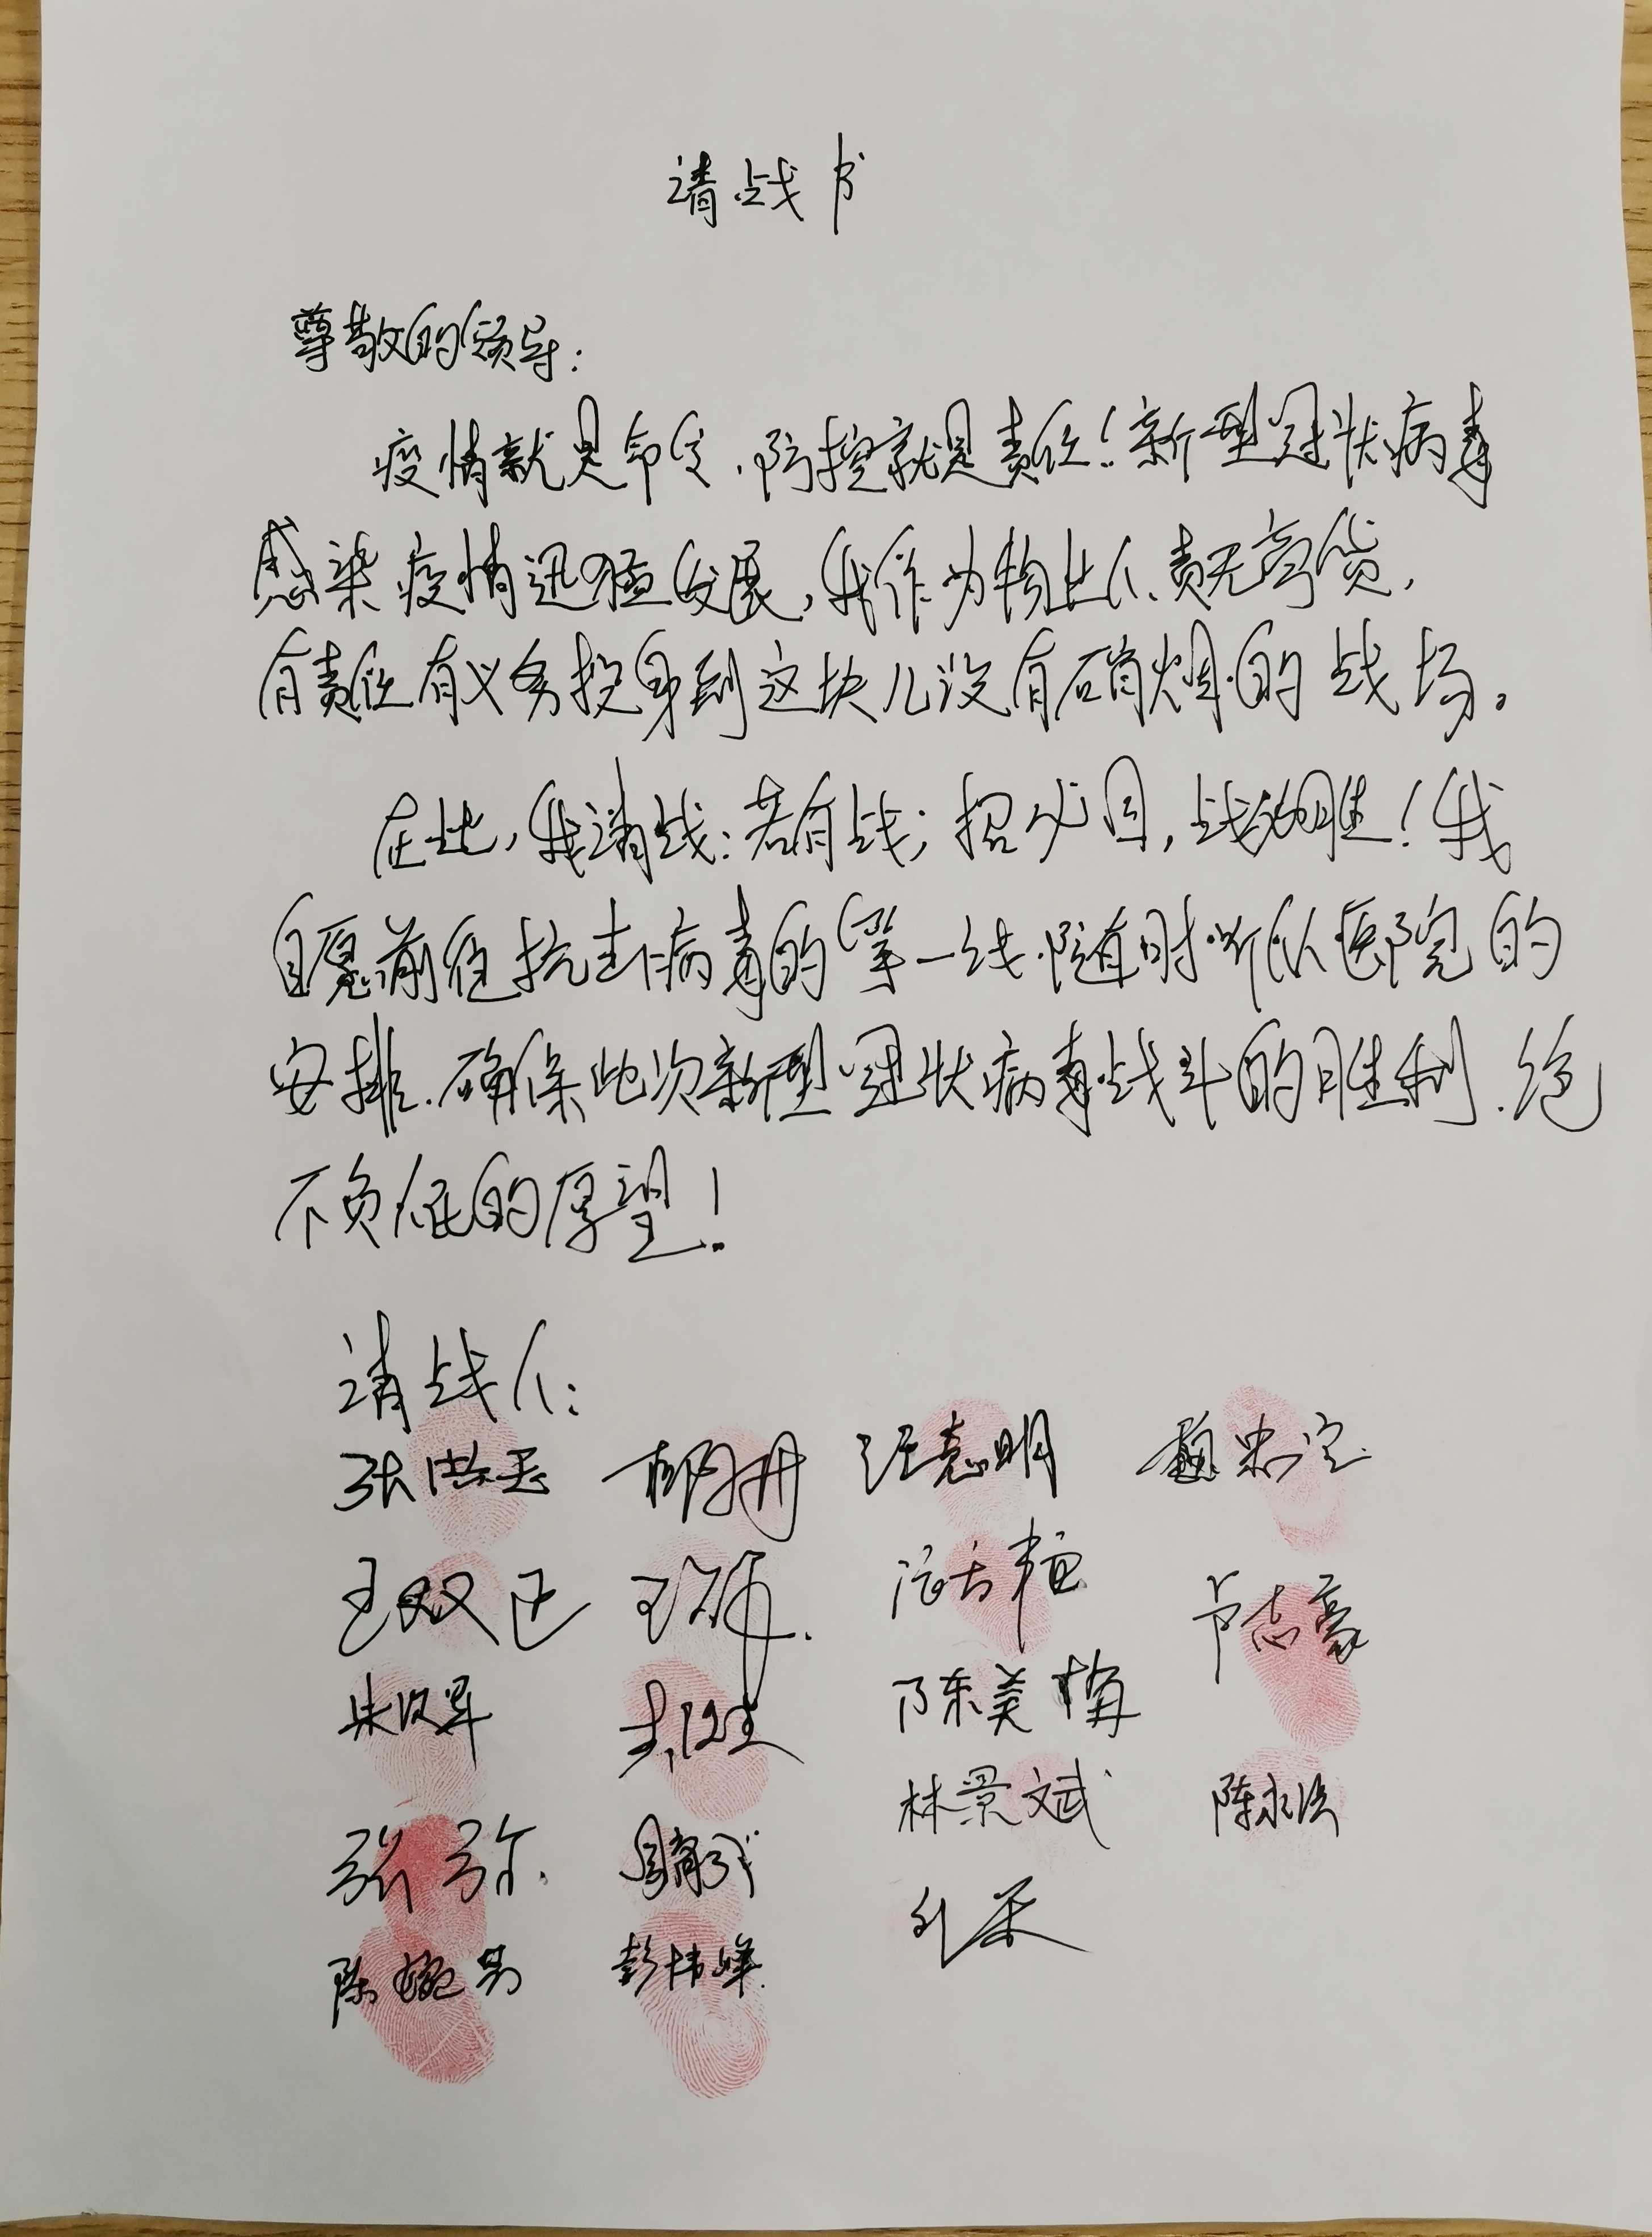 请战书
尊敬的领导：
疫情就是命令，防控就是责任！新型冠状病毒
感染疫情迅猛发展，我作为物业人、责无旁贷，
有责任有义务投身到这块儿没有硝烟的战场。
在此，我请战：若有战；招必回，战必胜！我
自愿前往抗击病毒的第一线.随时听从医院的
安排.确保此次新型冠状病毒战斗的胜利.绝
不负 的厚望！
请战人：
张洪玉 柳丹 汪志明 魏忠宝
王双正 卢志豪
陈美梅
林景文斌 陈永法
张弥
彭伟峰